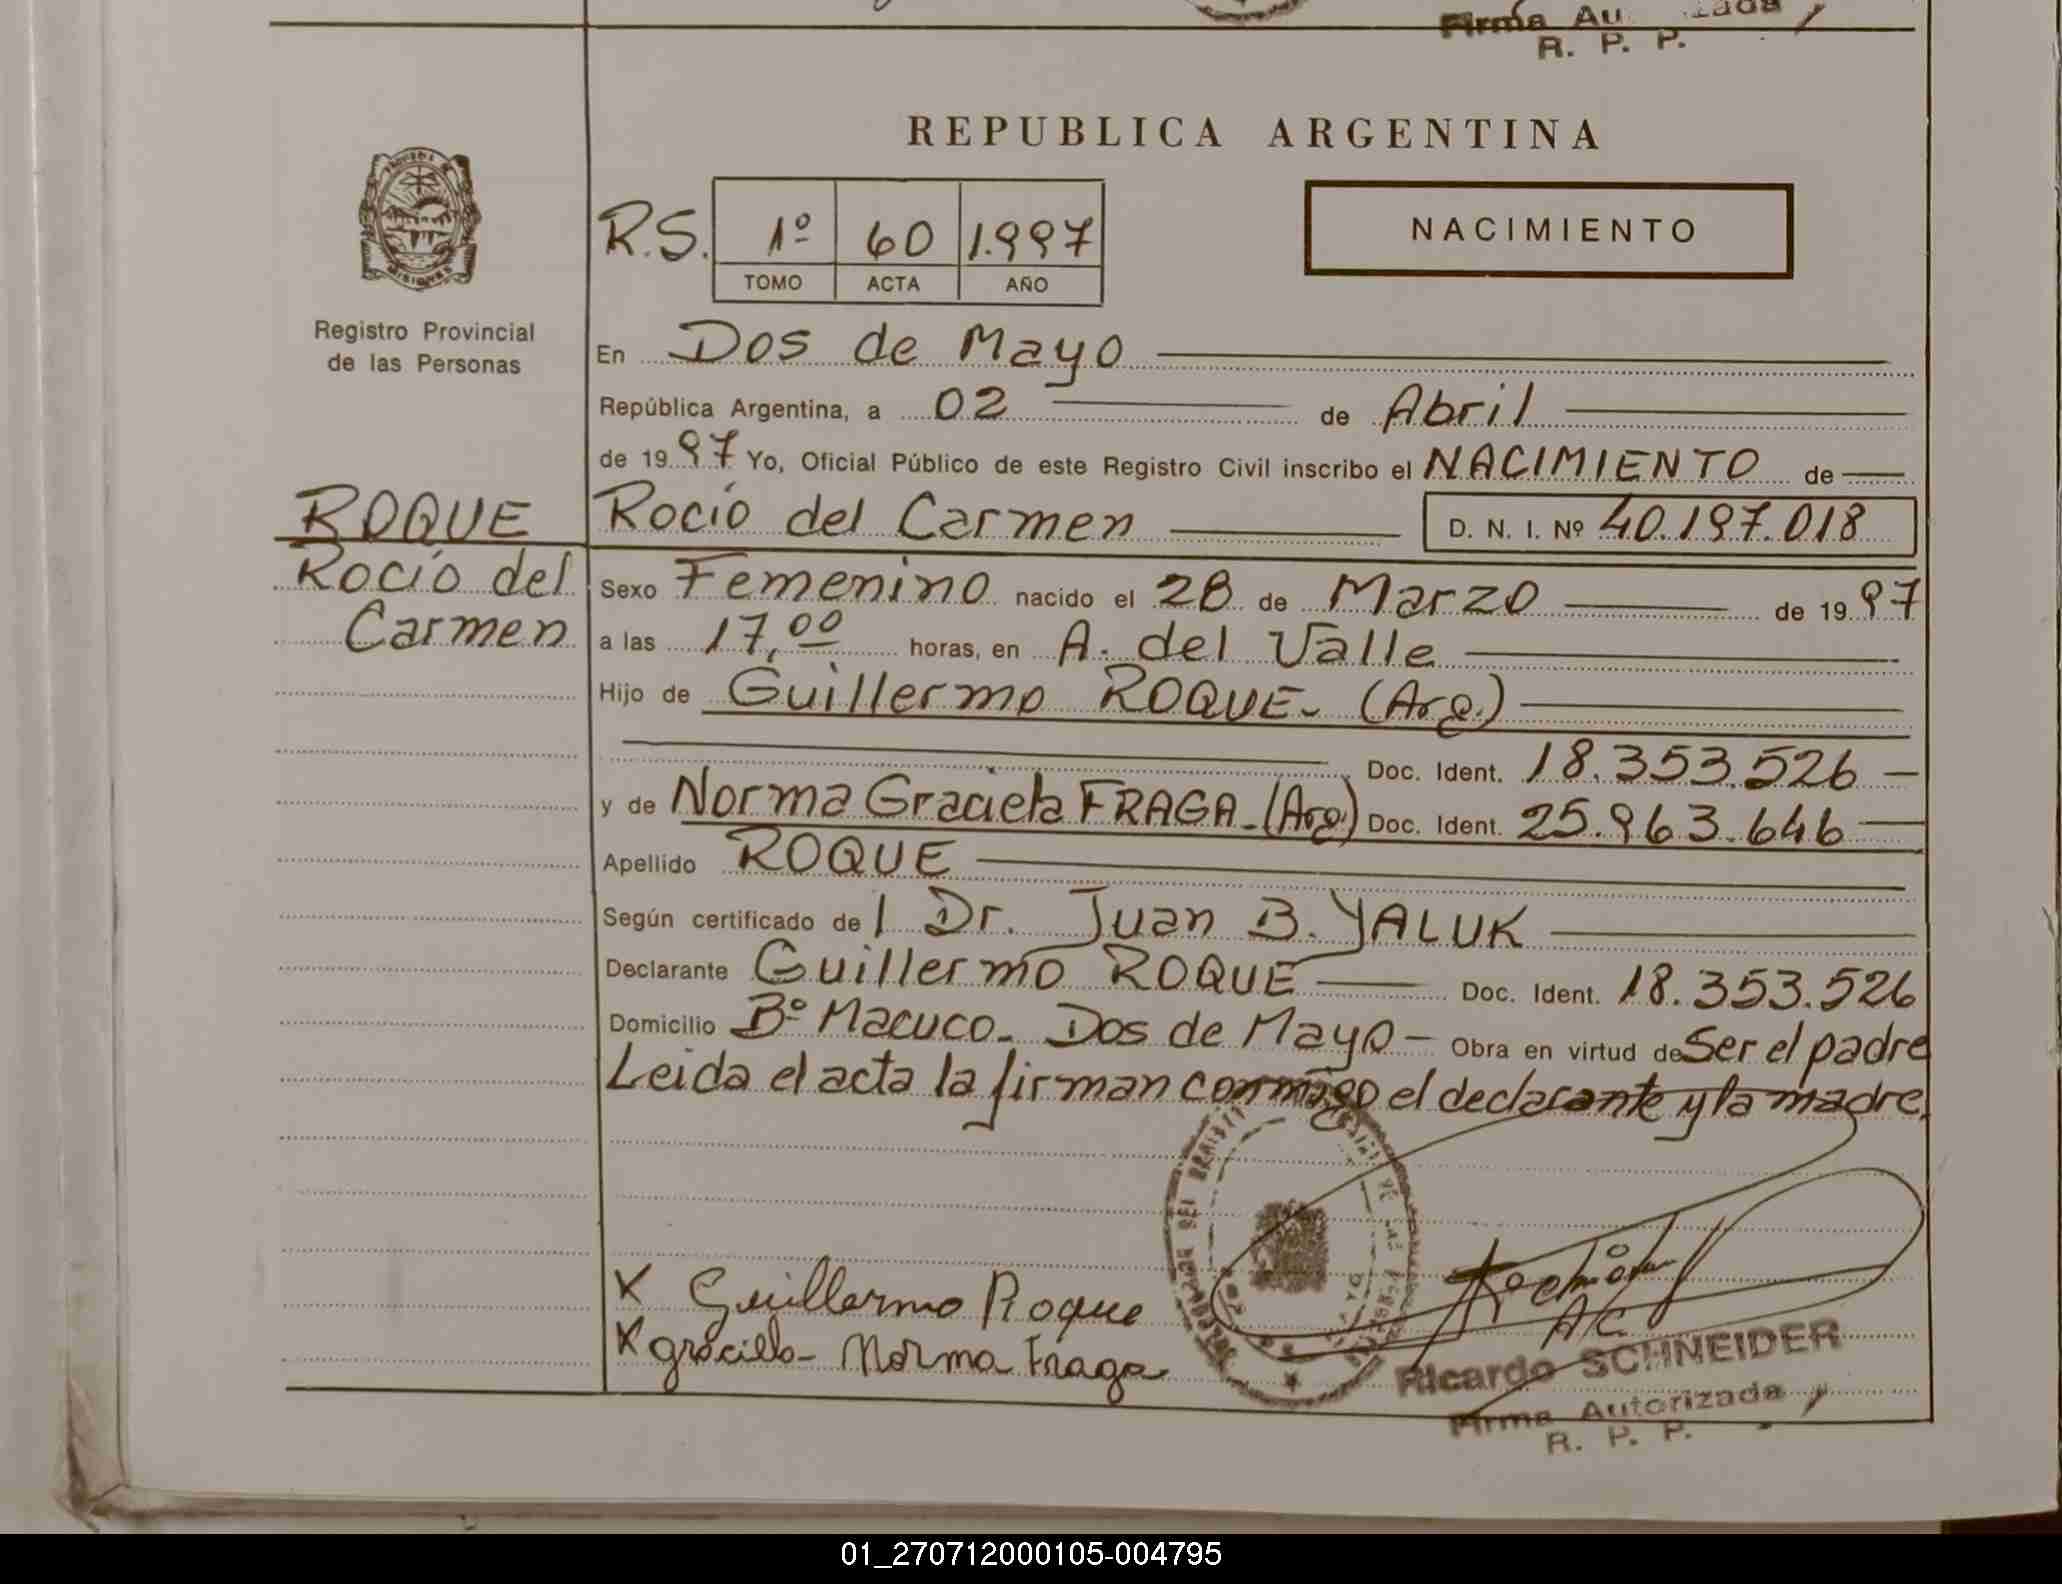 Firma Au
R. P. P.
REPUBLICA ARGENTINA
R.S. 1º 60 1.997
TOMO ACTA AÑO
NACIMIENTO
MISIONES
Registro Provincial
de las Personas
En Dos de Mayo
República Argentina, a 02 de Abril
de 1997 Yo, Oficial Público de este Registro Civil inscribo el NACIMIENTO de
ROQUE Rocío del Carmen D. N. I. Nº 40.197.018
Rocío del
Carmen
Sexo Femenino nacido el 28 de Marzo de 1997
a las 17,00 horas, en A. del Valle
Hijo de Guillermo ROQUE- (Arg.)
Doc. Ident. 18.353.526
y de Norma Graciela FRAGA-(Arg.) Doc. Ident. 25.963.646
Apellido ROQUE
Según certificado de l Dr. Juan B. YALUK
Declarante Guillermo ROQUE Doc. Ident. 18.353.526
Domicilio Bº Macuco- Dos de Mayo- Obra en virtud de Ser el padre
Leida el acta la firman conmigo el declarante y la madre.
X Guillermo Roque
X graciela- Norma Fraga
A/C
Ricardo SCHNEIDER
Firma Autorizada
R. P. P.
01_270712000105-004795